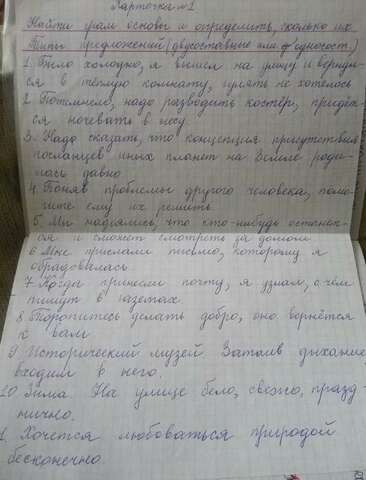 Карточка №1
Найти грам. основы и определить, сколько их
Типы предложений (двусоставные или односост.)
1. Было холодно, я вышел на улицу и верну-
ся в тёплую комнату, гулять не хотелось
2. Потемнело, надо разводить костёр, придёт-
ся ночевать в лесу.
3. Надо сказать, что концепция присутствия
посланцев иных планет на Земле роди-
лась давно.
4. Поняв проблемы другого человека, помо-
гите ему их решить.
5. Мы надеялись, что кто-нибудь останет-
ся и сможет смотреть за домом.
6. Мне прислали письмо, которому я
обрадовалась.
7. Когда принесли почту, я узнал, о чём
пишут в газетах.
8. Торопитесь делать добро, оно вернётся
к вам
9. Исторический музей. Затаив дыхание
входим в него.
10. Зима. На улице бело, свежо, празд-
нично.
1. Хочется любоваться природой
бесконечно.